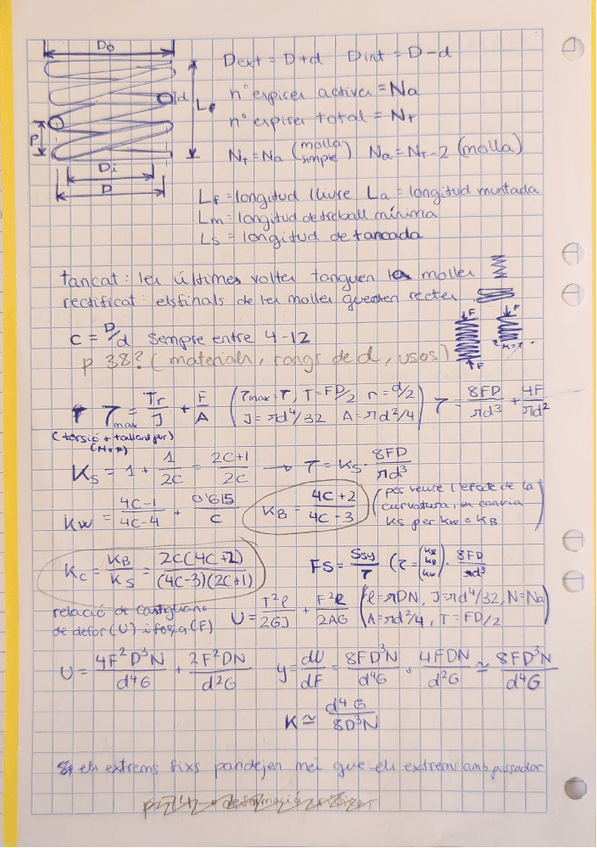 Do
d
Lf
P
Di
D
Dext = D+d Dint = D-d
nº espires actives = Na
nº espires total = NT
NT = Na (molla simple) Na = NT-2 (molla)
Lf = longitud lliure La = longitud muntada
Lm = longitud de treball mínima
Ls = longitud de tancada
tancat: les últimes voltes tanquen la molles
rectificat: els finals de les molles queden rectes
F F
F
C = D/d sempre entre 4-12
p 38? (materials, rang de d, usos)
τmax = Tr/J + F/A (τmax = τ, T = FD/2 r = d/2 J = πd⁴/32 A = πd²/4) τ = 8FD/πd³ + 4F/πd²
(torsió + tallant pur)
Ks = 1 + 1/2C = 2C+1/2C → τ = Ks · 8FD/πd³
Kw = 4C-1/4C-4 + 0'615/C KB = 4C+2/4C-3 (per veure l'efecte de la curvatura, es canvia Ks per Kw o KB)
Kc = KB/Ks = 2C(4C+2)/(4C-3)(2C+1) FS = Ssy/τ (τ = (Ks KB Kw) · 8FD/πd³
relació de Castigliano
de defor (U) i força (F) U = T²l/2GJ + F²l/2AG (l = πDN, J = πd⁴/32, N = Na A = πd²/4, T = FD/2)
U = 4F²D³N/d⁴G + 2F²DN/d²G y = dU/dF = 8FD³N/d⁴G + 4FDN/d²G ≃ 8FD³N/d⁴G
K ≃ d⁴G/8D³N
els extrems fixs pandejen més que els extrems amb passador